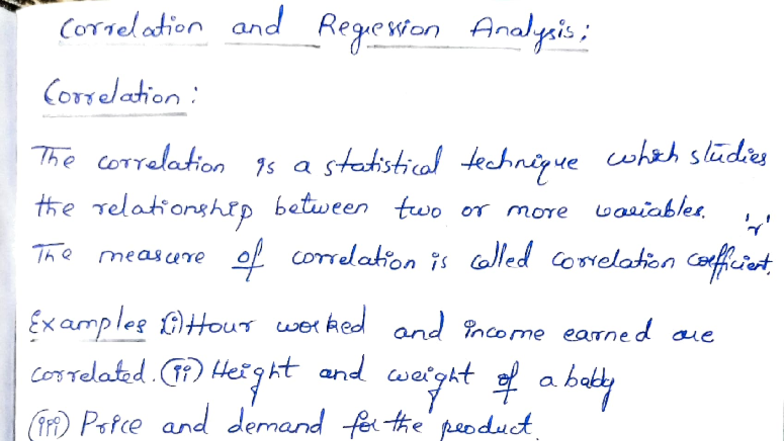 Correlation and Regression Analysis:
Correlation:
The correlation is a statistical technique which studies
the relationship between two or more variables. 'r'
The measure of correlation is called correlation coefficient.
Examples (i) Hour worked and income earned are
correlated. (ii) Height and weight of a baby
(iii) Price and demand for the product.